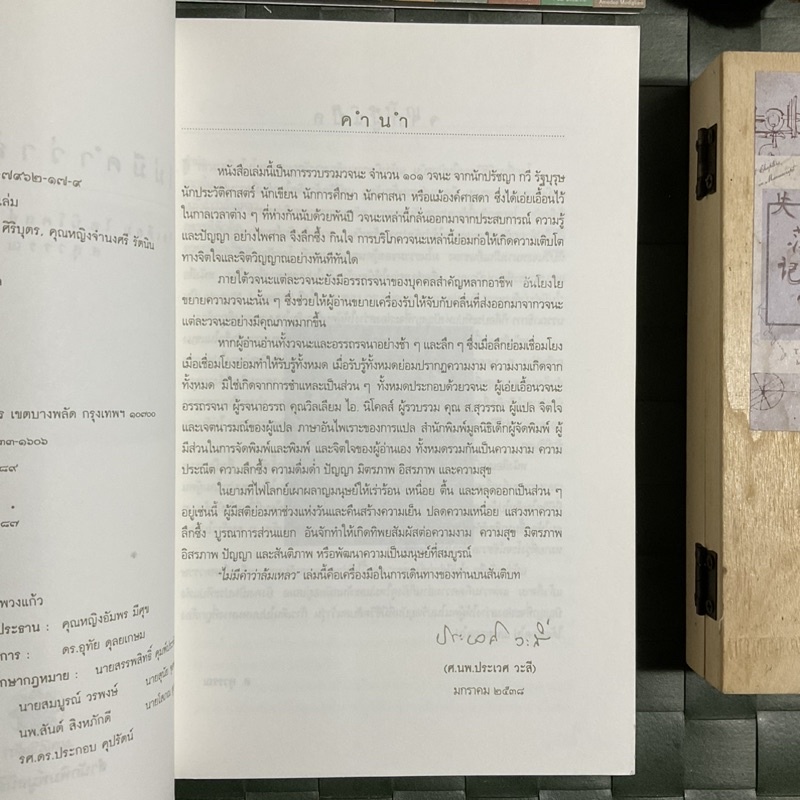 ๗๙๖๒-๑๗-๙
เล่ม
ศิริบุตร, คุณหญิงจำนงศรี รัตนิน
ร เขตบางพลัด กรุงเทพฯ ๑๐๗๐๐
๓๓-๑๖๐๖
๘๙
๘๗
พวงแก้ว
ประธาน : คุณหญิงอัมพร มีศุข
การ : ดร.อุทัย ดุลยเกษม
กษากฎหมาย : นายสรรพสิทธิ์
นายสมบูรณ์ วรพงษ์
นพ.สันต์ สิงหภักดี
รศ.ดร.ประกอบ คุปรัตน์
คำนำ
หนังสือเล่มนี้เป็นการรวบรวมวจนะ จำนวน ๑๐๑ วจนะ จากนักปรัชญา กวี รัฐบุรุษ
นักประวัติศาสตร์ นักเขียน นักการศึกษา นักศาสนา หรือแม้องค์ศาสดา ซึ่งได้เอ่ยเอื้อนไว้
ในกาลเวลาต่าง ๆ ที่ห่างกันนับด้วยพันปี วจนะเหล่านี้กลั่นออกมาจากประสบการณ์ ความรู้
และปัญญา อย่างไพศาล จึงลึกซึ้ง กินใจ การบริโภควจนะเหล่านี้ย่อมก่อให้เกิดความเติบโต
ทางจิตใจและจิตวิญญาณอย่างทันทีทันใด
ภายใต้วจนะแต่ละวจนะยังมีอรรถรจนาของบุคคลสำคัญหลากอาชีพ อันโยงใย
ขยายความวจนะนั้น ๆ ซึ่งช่วยให้ผู้อ่านขยายเครื่องรับให้จับกับคลื่นที่ส่งออกมาจากวจนะ
แต่ละวจนะอย่างมีคุณภาพมากขึ้น
หากผู้อ่านอ่านทั้งวจนะและอรรถรจนาอย่างช้า ๆ และลึก ๆ ซึ่งเมื่อลึกย่อมเชื่อมโยง
เมื่อเชื่อมโยงย่อมทำให้รับรู้ทั้งหมด เมื่อรับรู้ทั้งหมดย่อมปรากฏความงาม ความงามเกิดจาก
ทั้งหมด มิใช่เกิดจากการชำแหละเป็นส่วน ๆ ทั้งหมดประกอบด้วยวจนะ ผู้เอ่ยเอื้อนวจนะ
อรรถรจนา ผู้รจนาอรรถ คุณวิลเลียม ไอ. นิโคลส์ ผู้รวบรวม คุณ ส.สุวรรณ ผู้แปล จิตใจ
และเจตนารมณ์ของผู้แปล ภาษาอันไพเราะของการแปล สำนักพิมพ์มูลนิธิเด็กผู้จัดพิมพ์ ผู้
มีส่วนในการจัดพิมพ์และพิมพ์ และจิตใจของผู้อ่านเอง ทั้งหมดรวมกันเป็นความงาม ความ
ประณีต ความลึกซึ้ง ความดื่มด่ำ ปัญญา มิตรภาพ อิสรภาพ และความสุข
ในยามที่ไฟโลกย์เผาผลาญมนุษย์ให้เร่าร้อน เหนื่อย ตื้น และหลุดออกเป็นส่วน ๆ
อยู่เช่นนี้ ผู้มีสติย่อมหาช่วงแห่งวันและคืนสร้างความเย็น ปลดความเหนื่อย แสวงหาความ
ลึกซึ้ง บูรณาการส่วนแยก อันจักทำให้เกิดทิพยสัมผัสต่อความงาม ความสุข มิตรภาพ
อิสรภาพ ปัญญา และสันติภาพ หรือพัฒนาความเป็นมนุษย์ที่สมบูรณ์
"ไม่มีคำว่าล้มเหลว" เล่มนี้คือเครื่องมือในการเดินทางของท่านบนสันติบท
ประเวศ วะสี
(ศ.นพ.ประเวศ วะสี)
มกราคม ๒๕๓๘